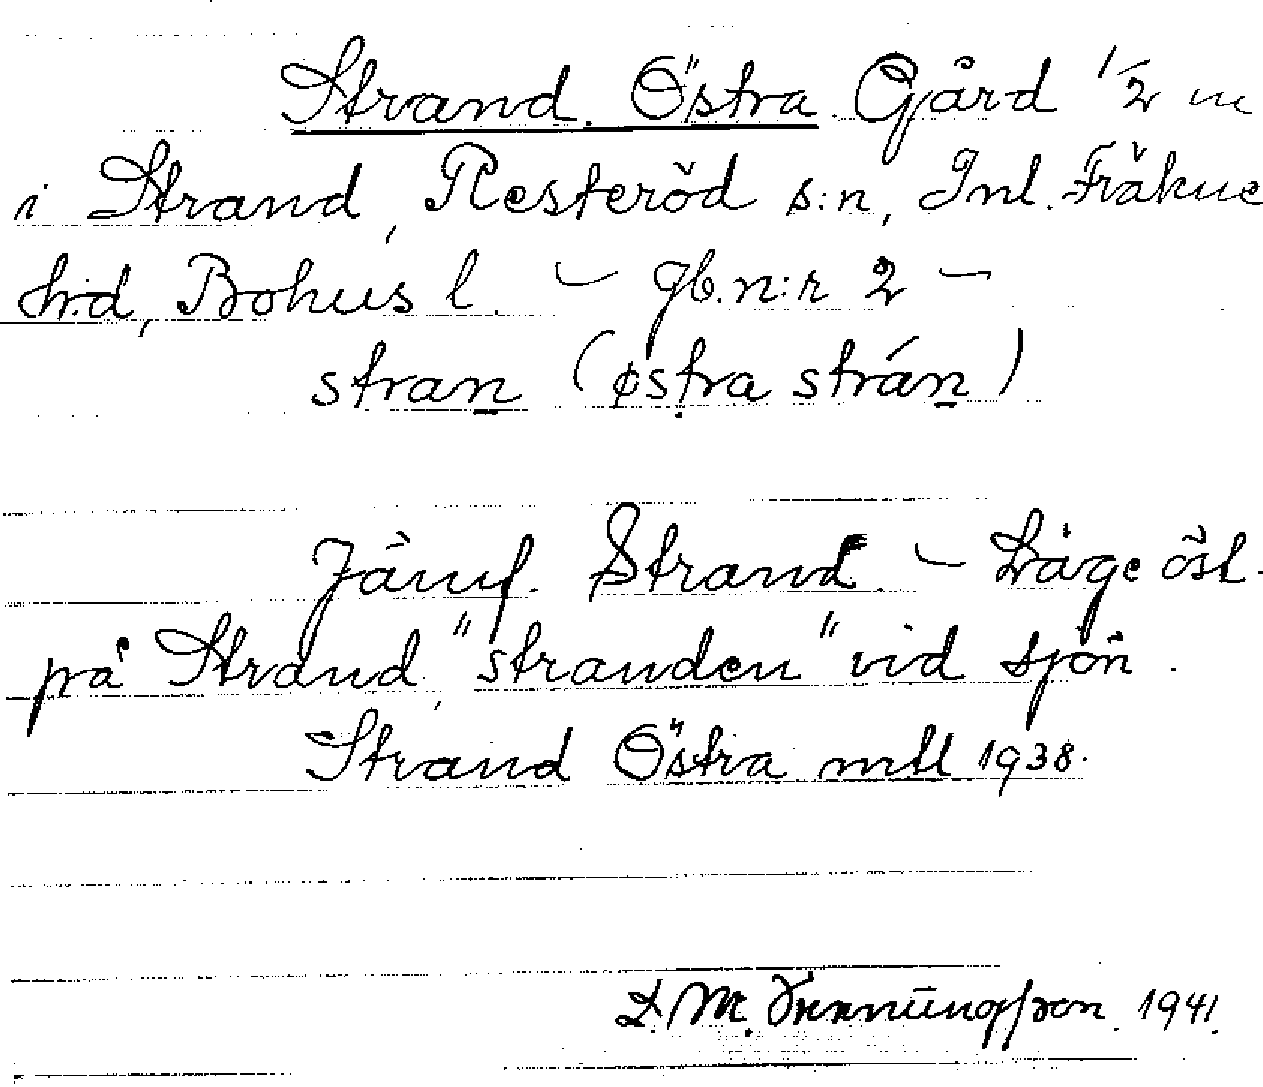 Strand. Östra Gård 1/2 m
i Strand, Resteröd s:n, Inl. Fräkne
h:d, Bohus l. – gb.n:r 2 –
stran (østra strán)
Jämf. Strand. – Läge öst.
på Strand, "stranden" vid sjön.
Strand Östra mtl 1938.
D. M. 1941.